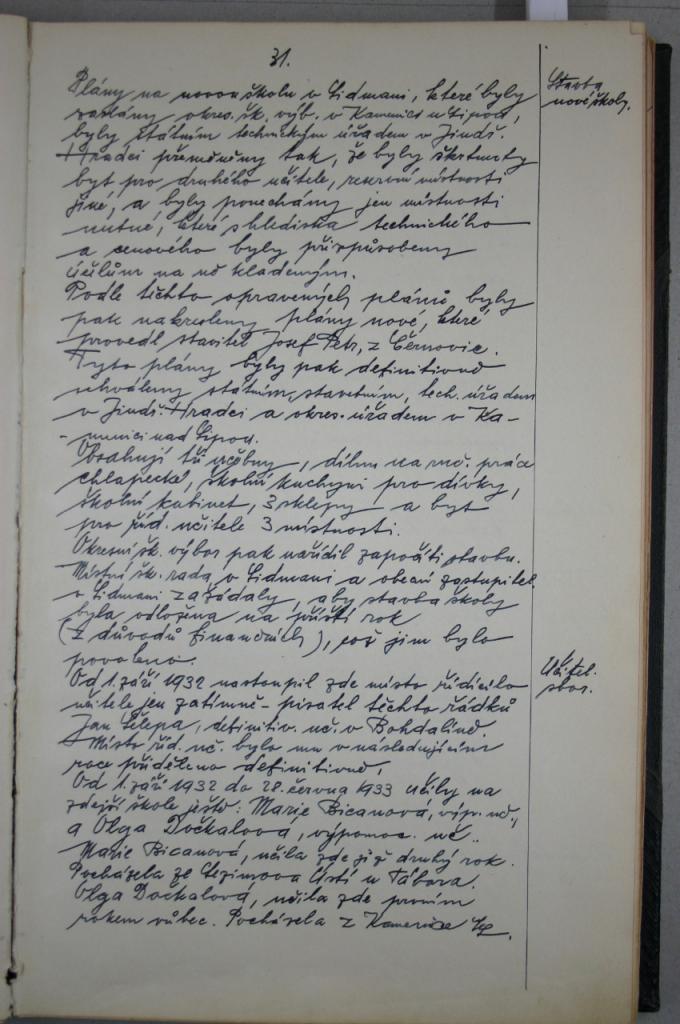 31.
Plány na novou školu v Lidmani, které byly
Stavba
nové školy.
zaslány okres. šk. výb. v Kamenici n Lipou,
byly státním technickým úřadem v Jindř.
Hradci přeměněny tak, že byly škrtnuty
byt pro druhého učitele, reservní místnosti
jiné, a byly ponechány jen místnosti
nutné, které s hlediska technického
a cenového byly přizpůsobeny
účelům na ně kladeným.
Podle těchto opravených plánů byly
pak nakresleny plány nové, které
provedl stavitel Josef Petr, z Černovic.
Tyto plány byly pak definitivně
schváleny státním, stavebním, tech. úřadem
v Jindř. Hradci a okres. úřadem v Ka-
-menici nad Lipou.
Obsahují tři učebny, dílnu na ruč. práce
chlapecké, školní kuchyni pro dívky,
školní kabinet, 3 sklepy a byt
pro říd. učitele 3 místnosti.
Okresní šk. výbor pak nařídil započíti stavbu.
Místní šk. rada v Lidmani a obecní zastupitel.
v Lidmani zažádaly, aby stavba školy
byla odložena na příští rok
(z důvodů finančních), což jim bylo
povoleno.
Učitel.
sbor.
Od 1. září 1932 nastoupil zde místo řídícího
učitele jen zatímně - pisatel těchto řádků
Jan Šlepa, definitiv. uč. v Bohdalíně.
Místo říd. uč. bylo mu v následujícím
roce přiděleno definitivně.
Od 1. září 1932 do 28. června 1933 učily na
zdejší škole ještě: Marie Bicanová, výp. uč.,
a Olga Dočkalová, výpomoc. uč..
Marie Bicanová, učila zde již druhý rok.
Pocházela ze Sezimova Ústí u Tábora.
Olga Dočkalová, učila zde prvním
rokem vůbec. Pocházela z Kamenice